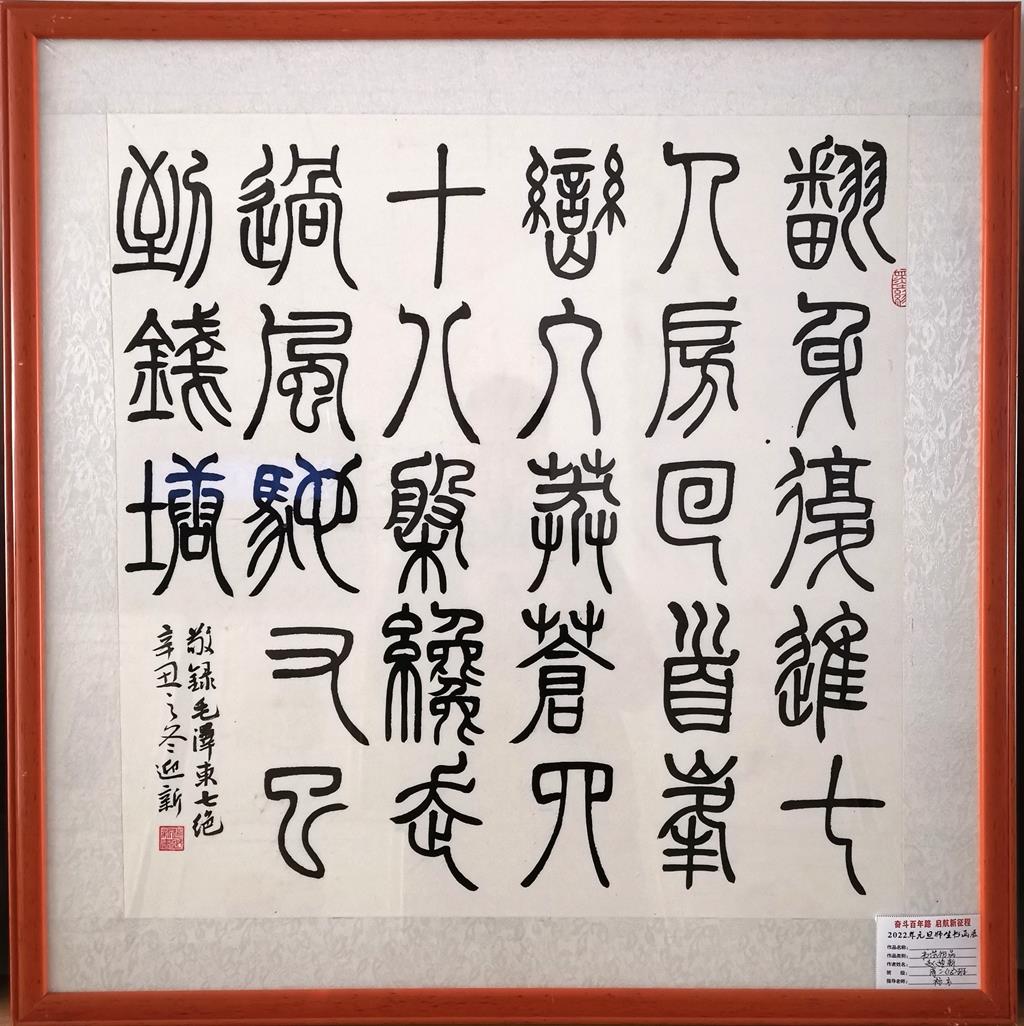 翻身復進七
人房回首峯
巒入莽蒼四
十八槃纔走
過風馳又已
到錢塘
敬録毛澤東七绝
辛丑之冬迎新
奋斗百年路 启航新征程
2022年元旦师生书画展
作品名称：
作品类别：
作者姓名：
班 级：
指导老师：